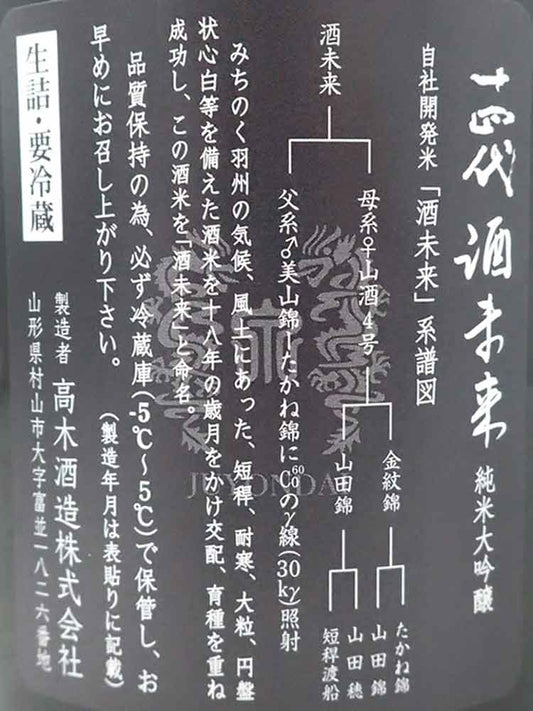 十四代 酒未来 純米大吟醸
自社開発米「酒未来」系譜図
酒未来
母系♀山酒4号
金紋錦
たかね錦
山田錦
山田錦
山田穂
短稈渡船
父系♂美山錦─たかね錦にCo⁶⁰のγ線(30kγ)照射
みちのく羽州の気候、風土にあった、短稈、耐寒、大粒、円盤
状心白等を備えた酒米を十八年の歳月をかけ交配、育種を重ね
成功し、この酒米を「酒未来」と命名。
品質保持の為、必ず冷蔵庫(-5℃〜5℃)で保管し、お
早めにお召し上がり下さい。(製造年月は表貼りに記載)
製造者 高木酒造株式会社
山形県村山市大字富並一八二六番地
生詰・要冷蔵
JUYONDAI